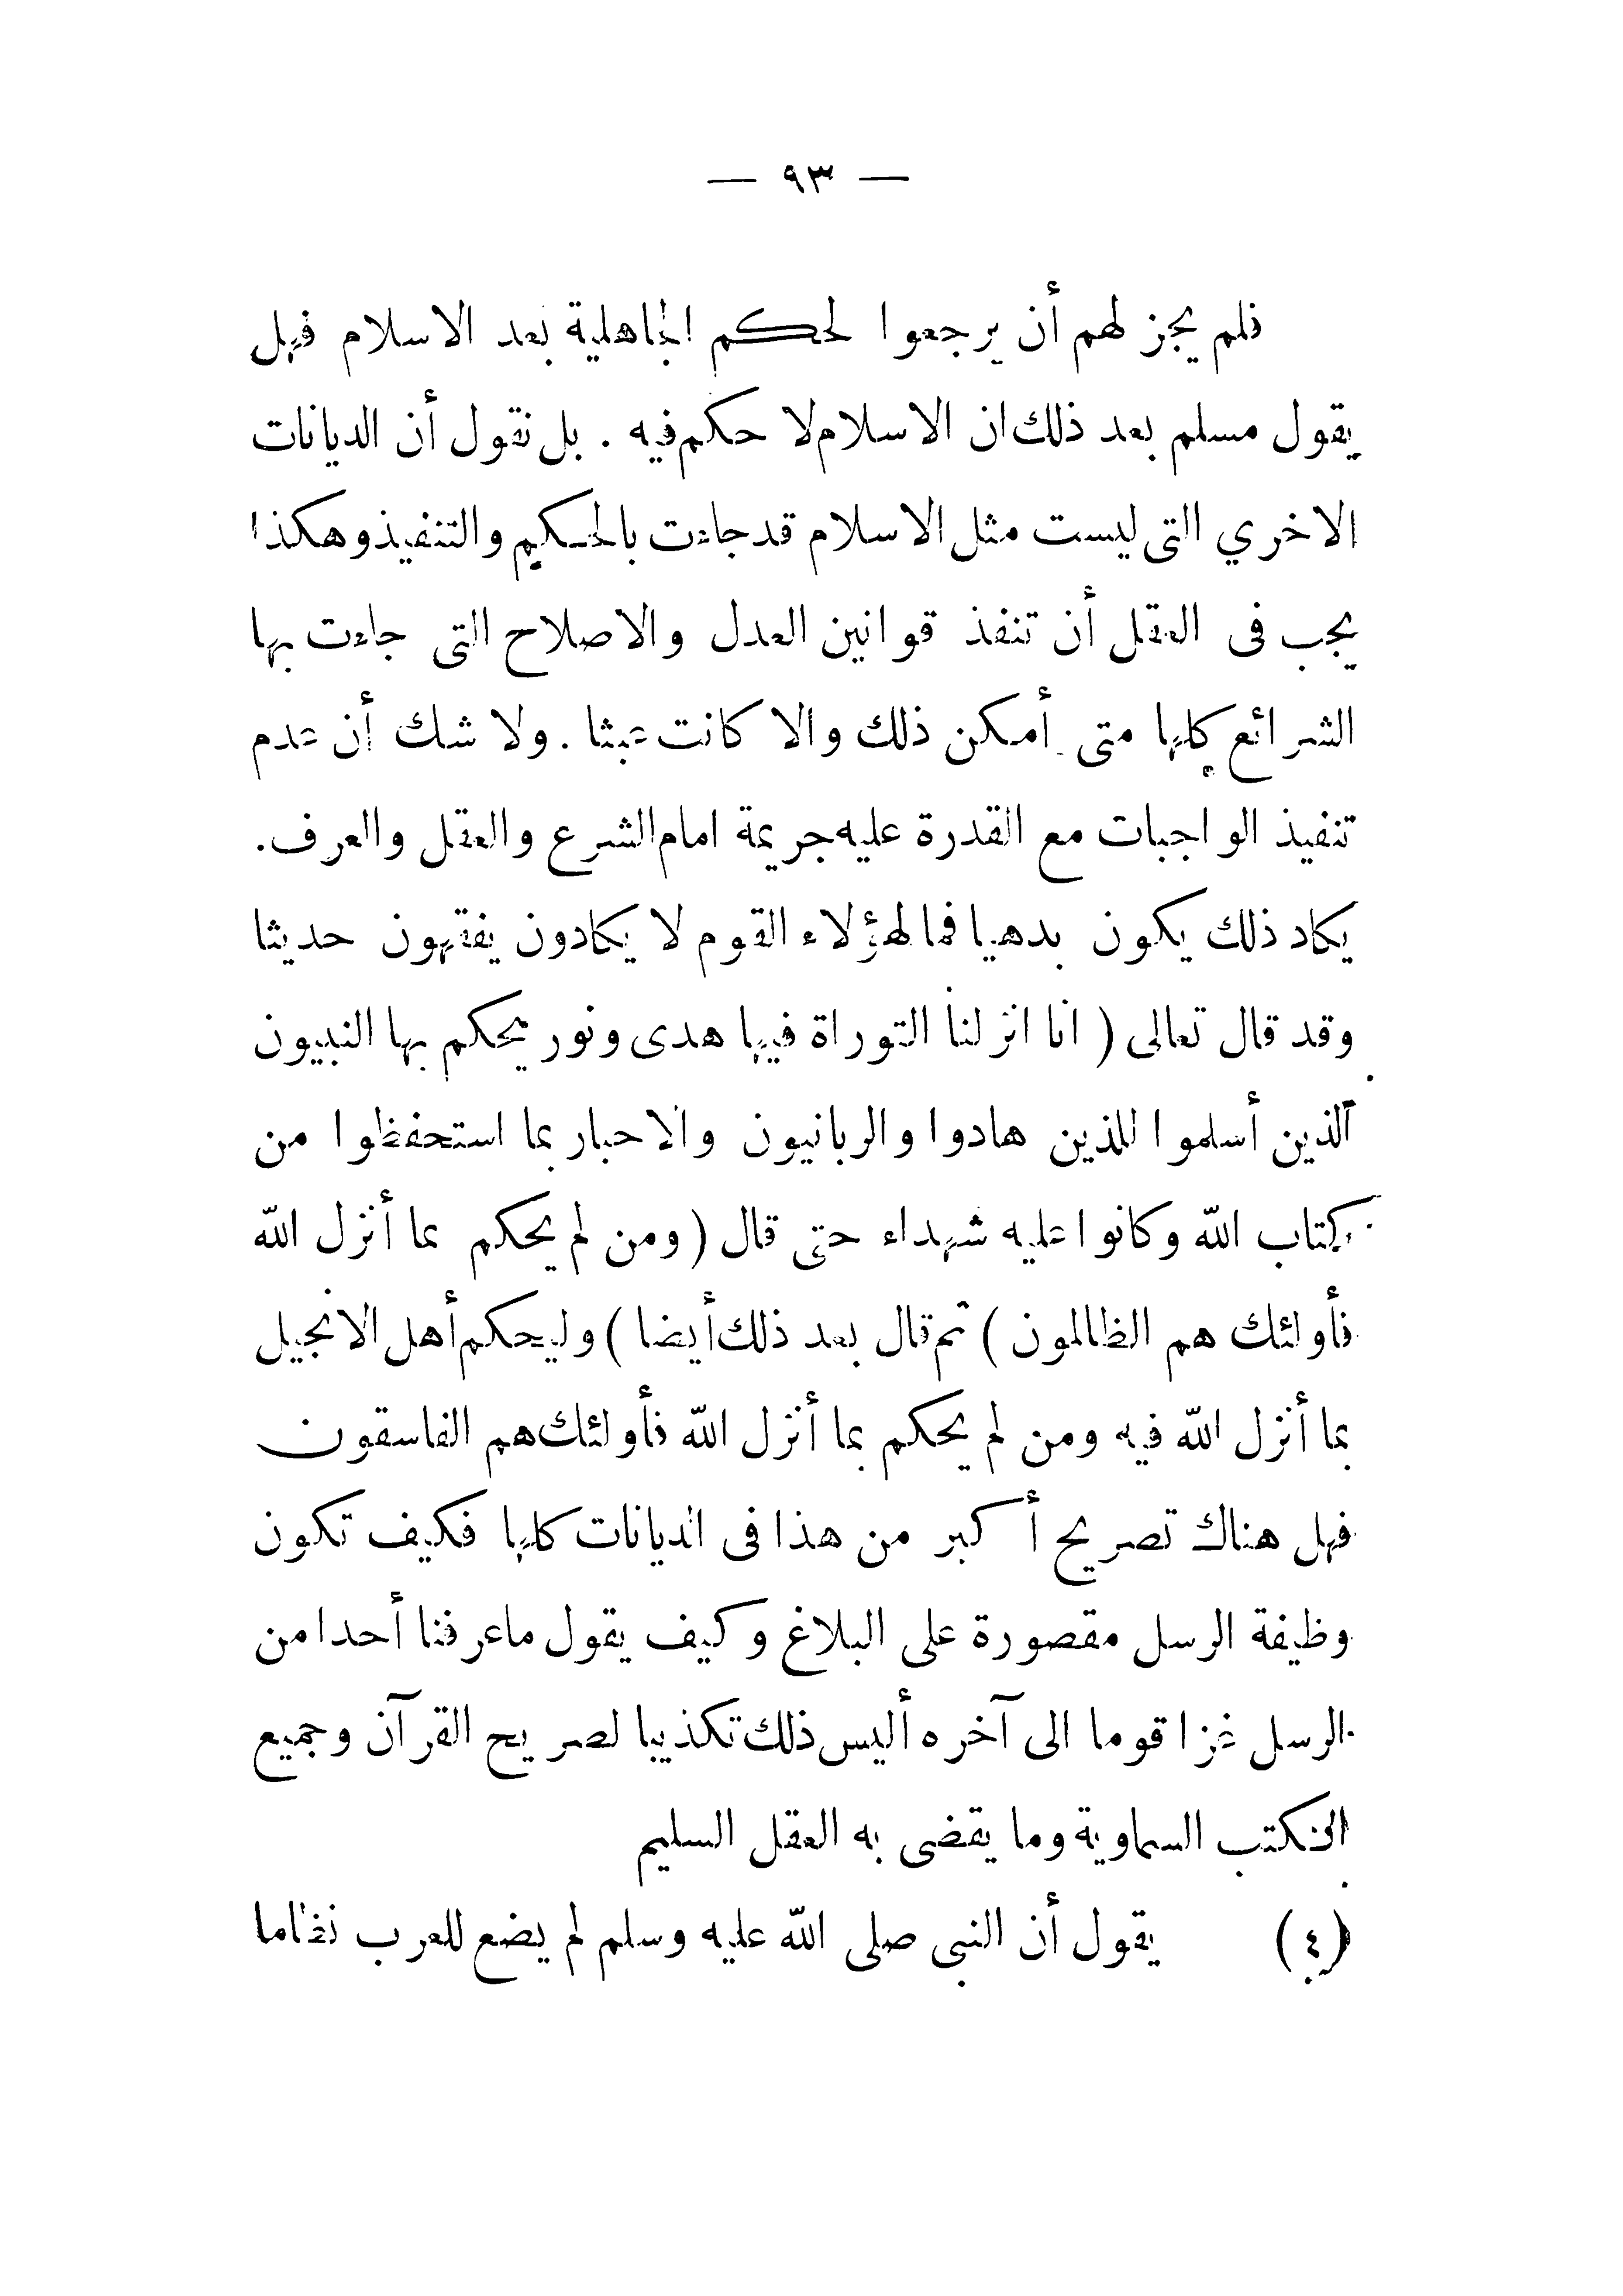 — ٩٣ —
فلم يجز لهم أن يرجعوا لحكم الجاهلية بعد الاسلام فهل
يقول مسلم بعد ذلك ان الاسلام لا حكم فيه . بل نقول أن الديانات
الاخري التى ليست مثل الاسلام قد جاءت بالحكم والتنفيذ وهكذا
يجب فى العقل أن تنفذ قوانين العدل والاصلاح التى جاءت بها
الشرائع كلها متى أمكن ذلك والا كانت عبثا . ولا شك أن عدم
تنفيذ الواجبات مع القدرة عليه جريمة امام الشرع والعقل والعرف.
يكاد ذلك يكون بدهيا فما لهؤلاء القوم لا يكادون يفقهون حديثا
وقد قال تعالى ( انا انزلنا التوراة فيها هدى ونور يحكم بها النبيون
الذين أسلموا للذين هادوا والربانيون والاحبار بما استحفظوا من
كتاب الله وكانوا عليه شهداء حتى قال ( ومن لم يحكم بما أنزل الله
فأولئك هم الظالمون ) ثم قال بعد ذلك أيضا ) وليحكم أهل الانجيل
بما أنزل الله فيه ومن لم يحكم بما أنزل الله فأولئك هم الفاسقون
فهل هناك تصريح أكبر من هذا فى الديانات كلها فكيف تكون
وظيفة الرسل مقصورة على البلاغ وكيف يقول ما عرفنا أحدا من
الرسل غزا قوما الى آخره أليس ذلك تكذيبا لصريح القرآن وجميع
الكتب السماوية وما يقضى به العقل السليم
(٤) يقول أن النبى صلى الله عليه وسلم لم يضع للعرب نظاما